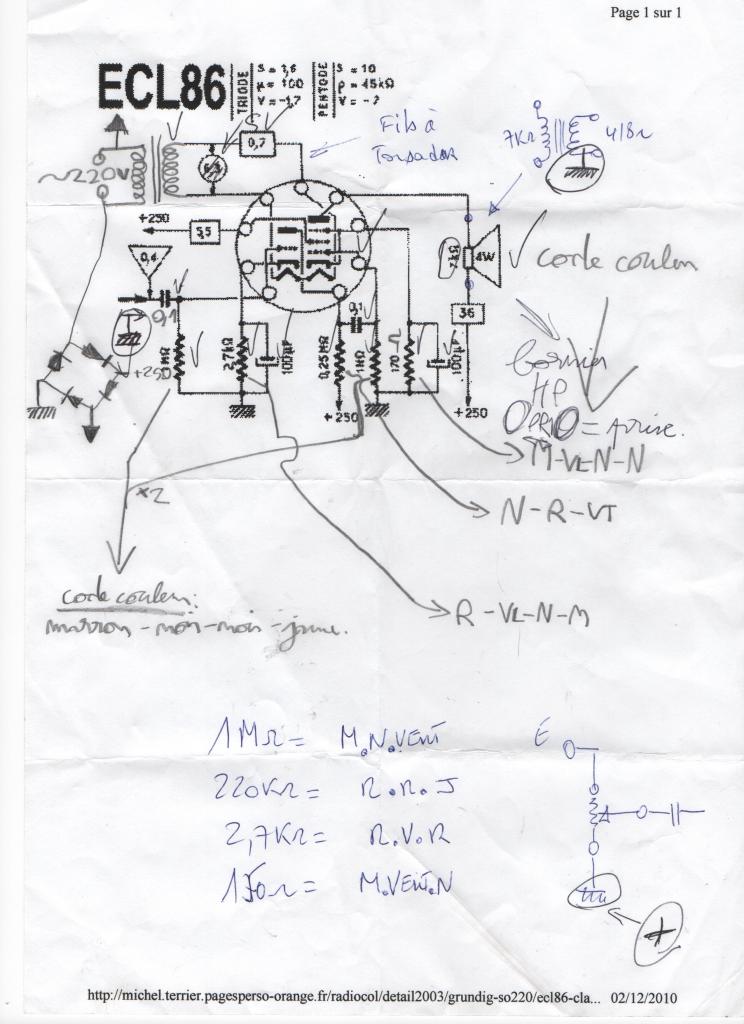 Page 1 sur 1
ECL86
TRIODE
S = 1,6
μ = 100
V = -1,7
PENTODE
S = 10
ρ = 45kΩ
V = -7
Fils à
Torsader
7KΩ
4/8Ω
0,7
6,3
~220V
+250
5,5
0,4
0,1
4W
36
code couleur
+250
1MΩ
2,7kΩ
100μF
0,25MΩ
0,1
1MΩ
170 Ω
100μ
+250
+250
bornier
HP
= prise.
M-VL-N-N
x2
N-R-VT
code couleur:
marron-noir-noir-jaune.
R-VL-N-M
1MΩ = M.N.VERT
220KΩ = R.R.J
2,7KΩ = R.V.R
150Ω = M.VERT.N
É
+
http://michel.terrier.pagesperso-orange.fr/radiocol/detail2003/grundig-so220/ecl86-cla... 02/12/2010